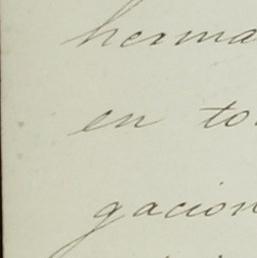 herma
en to
gacion